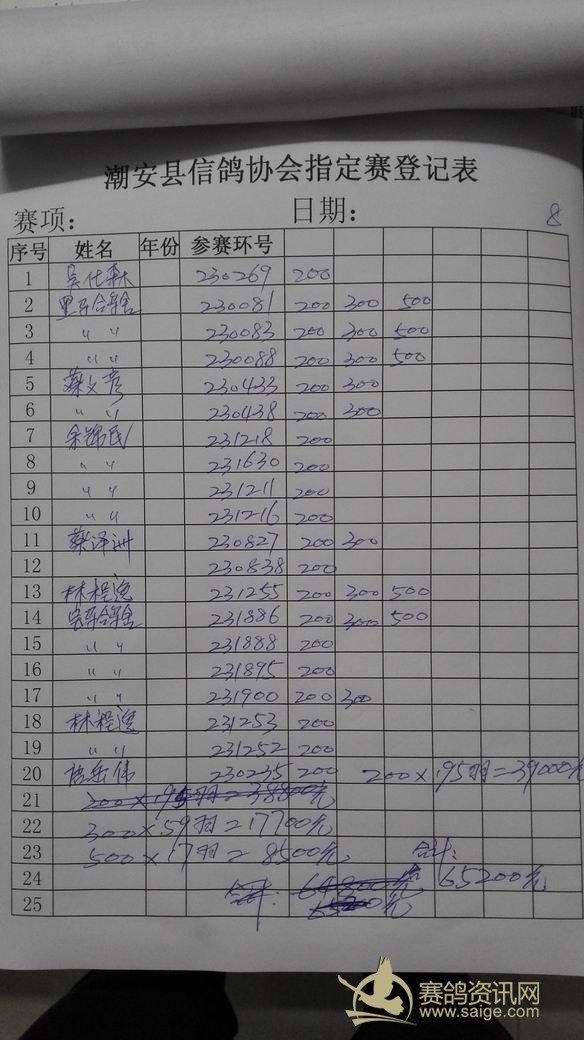 潮安县信鸽协会指定赛登记表
赛项： 日期： 8
序号 姓名 年份 参赛环号
1 230269 200
2 230081 200 300 500
3 〃 〃 230083 200 300 500
4 〃 〃 230088 200 300 500
5 蔡文彦 230433 200 300
6 〃 〃 230438 200 300
7 余锦民 231218 200
8 〃 〃 231630 200
9 〃 〃 231211 200
10 〃 〃 231216 200
11 蔡泽洲 230827 200 300
12 230838 200
13 林程逸 231255 200 300 500
14 231886 200 300 500
15 〃 〃 231888 200
16 〃 〃 231895 200
17 〃 〃 231900 200 300
18 林程逸 231253 200
19 〃 〃 231252 200
20 230235 200 200×195羽=39000元
21 200×195羽=38800元
22 300×59羽=17700元
23 500×17羽=8500元 合计:
24 合计: 65200元
25
赛鸽资讯网
www.saige.com